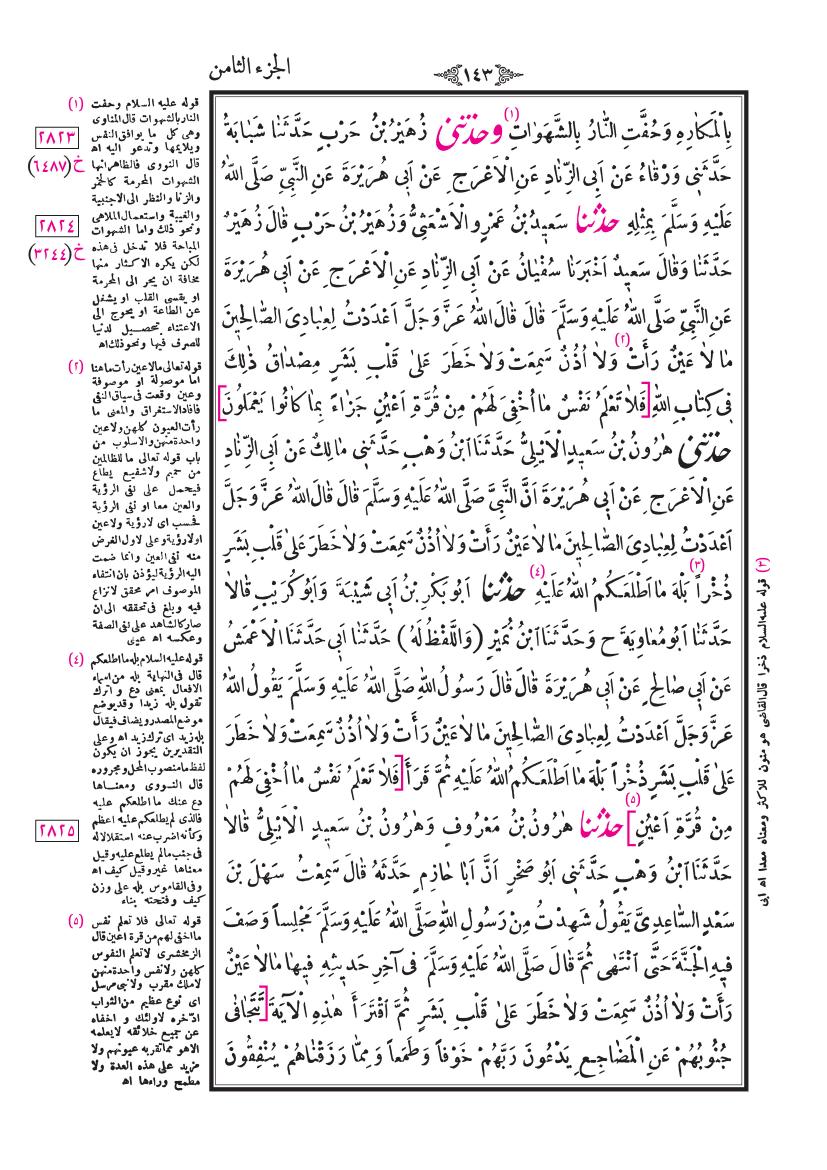 الجزء الثامن
١٤٣
بِالْمَكَارِهِ وَحُفَّتِ النَّارُ بِالشَّهَوَاتِ (١) وحَدَّثَنِي زُهَيْرُ بْنُ حَرْبٍ حَدَّثَنَا شَبَابَةُ
حَدَّثَنِي وَرْقَاءُ عَنْ اَبِي الزِّنَادِ عَنِ الْاَعْرَجِ عَنْ اَبِي هُرَيْرَةَ عَنِ النَّبِيِّ صَلَّى اللهُ
عَلَيْهِ وَسَلَّمَ بِمِثْلِهِ حَدَّثَنَا سَعِيدُ بْنُ عَمْرٍو الْاَشْعَثِيُّ وَزُهَيْرُ بْنُ حَرْبٍ قَالَ زُهَيْرٌ
حَدَّثَنَا وَقَالَ سَعِيدٌ اَخْبَرَنَا سُفْيَانُ عَنْ اَبِي الزِّنَادِ عَنِ الْاَعْرَجِ عَنْ اَبِي هُرَيْرَةَ
عَنِ النَّبِيِّ صَلَّى اللهُ عَلَيْهِ وَسَلَّمَ قَالَ قَالَ اللهُ عَزَّ وَجَلَّ اَعْدَدْتُ لِعِبَادِيَ الصَّالِحِينَ
مَا لَا عَيْنٌ رَأَتْ (٢) وَلَا اُذُنٌ سَمِعَتْ وَلَا خَطَرَ عَلَى قَلْبِ بَشَرٍ مِصْدَاقُ ذٰلِكَ
فِي كِتَابِ اللهِ [فَلَا تَعْلَمُ نَفْسٌ مَا اُخْفِيَ لَهُمْ مِنْ قُرَّةِ اَعْيُنٍ جَزَاءً بِمَا كَانُوا يَعْمَلُونَ]
حَدَّثَنِي هٰرُونُ بْنُ سَعِيدٍ الْاَيْلِيُّ حَدَّثَنَا ابْنُ وَهْبٍ حَدَّثَنِي مَالِكٌ عَنْ اَبِي الزِّنَادِ
عَنِ الْاَعْرَجِ عَنْ اَبِي هُرَيْرَةَ اَنَّ النَّبِيَّ صَلَّى اللهُ عَلَيْهِ وَسَلَّمَ قَالَ قَالَ اللهُ عَزَّ وَجَلَّ
اَعْدَدْتُ لِعِبَادِيَ الصَّالِحِينَ مَا لَا عَيْنٌ رَأَتْ وَلَا اُذُنٌ سَمِعَتْ وَلَا خَطَرَ عَلَى قَلْبِ بَشَرٍ
ذُخْرًا (٣) بَلْهَ مَا اَطْلَعَكُمُ اللهُ عَلَيْهِ (٤) حَدَّثَنَا اَبُو بَكْرِ بْنُ اَبِي شَيْبَةَ وَاَبُو كُرَيْبٍ قَالَا
حَدَّثَنَا اَبُو مُعَاوِيَةَ ح وَحَدَّثَنَا ابْنُ نُمَيْرٍ (وَاللَّفْظُ لَهُ) حَدَّثَنَا اَبِي حَدَّثَنَا الْاَعْمَشُ
عَنْ اَبِي صَالِحٍ عَنْ اَبِي هُرَيْرَةَ قَالَ قَالَ رَسُولُ اللهِ صَلَّى اللهُ عَلَيْهِ وَسَلَّمَ يَقُولُ اللهُ
عَزَّ وَجَلَّ اَعْدَدْتُ لِعِبَادِيَ الصَّالِحِينَ مَا لَا عَيْنٌ رَأَتْ وَلَا اُذُنٌ سَمِعَتْ وَلَا خَطَرَ
عَلَى قَلْبِ بَشَرٍ ذُخْرًا بَلْهَ مَا اَطْلَعَكُمُ اللهُ عَلَيْهِ ثُمَّ قَرَأَ [فَلَا تَعْلَمُ نَفْسٌ مَا اُخْفِيَ لَهُمْ
مِنْ قُرَّةِ اَعْيُنٍ] (٥) حَدَّثَنَا هٰرُونُ بْنُ مَعْرُوفٍ وَهٰرُونُ بْنُ سَعِيدٍ الْاَيْلِيُّ قَالَا
حَدَّثَنَا ابْنُ وَهْبٍ حَدَّثَنِي اَبُو صَخْرٍ اَنَّ اَبَا حَازِمٍ حَدَّثَهُ قَالَ سَمِعْتُ سَهْلَ بْنَ
سَعْدٍ السَّاعِدِيَّ يَقُولُ شَهِدْتُ مِنْ رَسُولِ اللهِ صَلَّى اللهُ عَلَيْهِ وَسَلَّمَ مَجْلِسًا وَصَفَ
فِيهِ الْجَنَّةَ حَتَّى انْتَهَى ثُمَّ قَالَ صَلَّى اللهُ عَلَيْهِ وَسَلَّمَ فِي آخِرِ حَدِيثِهِ فِيهَا مَا لَا عَيْنٌ
رَأَتْ وَلَا اُذُنٌ سَمِعَتْ وَلَا خَطَرَ عَلَى قَلْبِ بَشَرٍ ثُمَّ اقْتَرَأَ هٰذِهِ الْآيَةَ [تَتَجَافَى
جُنُوبُهُمْ عَنِ الْمَضَاجِعِ يَدْعُونَ رَبَّهُمْ خَوْفًا وَطَمَعًا وَمِمَّا رَزَقْنَاهُمْ يُنْفِقُونَ
(١) قوله عليه السلام وحفت
النار بالشهوات قال المناوى
وهى كل ما يوافق النفس
ويلايمها وتدعو اليه اه
قال النووى فالظاهر انها
الشهوات المحرمة كالخمر
والزنا والنظر الى الاجنبية
والغيبة واستعمال الملاهى
ونحو ذلك واما الشهوات
المباحة فلا تدخل فى هذه
لكن يكره الاكثار منها
مخافة ان يجر الى المحرمة
او يقسى القلب او يشغل
عن الطاعة او يحوج الى
الاعتناء بتحصيل لدنيا
للصرف فيها ونحو ذلك اه
(٢) قوله تعالى مالا عين رأت ما هنا
اما موصولة او موصوفة
وعين وقعت فى سياق النفى
فافاد الاستغراق والمعنى ما
رأت العيون كلهن ولا عين
واحدة منهن والاسلوب من
باب قوله تعالى ما للظالمين
من حميم ولا شفيع يطاع
فيحمل على نفى الرؤية
والعين معا او نفى الرؤية
فحسب اى لا رؤية ولا عين
او لا رؤية وعلى الاول الغرض
منه نفى العين وانما ضمت
اليه الرؤية ليؤذن بان انتفاء
الموصوف امر محقق لا نزاع
فيه وبلغ فى تحققه الى ان
صار كالشاهد على نفى الصفة
وعكسه اه عينى
(٤) قوله عليه السلام بله ما اطلعكم
قال فى النهاية بله من اسماء
الافعال بمعنى دع و اترك
تقول بله زيدا وقد يوضع
موضع المصدر ويضاف فيقال
بله زيد اى ترك زيد اه وعلى
التقديرين يجوز ان يكون
لفظ ما منصوب المحل ومجروره
قال النووى ومعناها
دع عنك ما اطلعكم عليه
فالذى لم يطلعكم عليه اعظم
وكأنه اضرب عنه استقلالا له
فى جنب مالم يطلع عليه وقيل
معناها غير وقيل كيف اه
وفى القاموس بله على وزن
كيف وفتحته بناء
(٥) قوله تعالى فلا تعلم نفس
ما اخفى لهم من قرة اعين قال
الزمخشرى لا تعلم النفوس
كلهن ولا نفس واحدة منهن
لا ملك مقرب ولا نبى مرسل
اى نوع عظيم من الثواب
ادخره لاولئك و اخفاه
عن جميع خلائقه لا يعلمه
الا هو مما تقر به عيونهم ولا
مزيد على هذه العدة ولا
مطمح وراءها اه
٢٨٢٣
خ (٦٤٨٧)
٢٨٢٤
خ (٣٢٤٤)
٢٨٢٥
(٣) قوله عليه السلام ذخرا قال القاضى هو منون للاكثر ومعناه معدا اه ابى